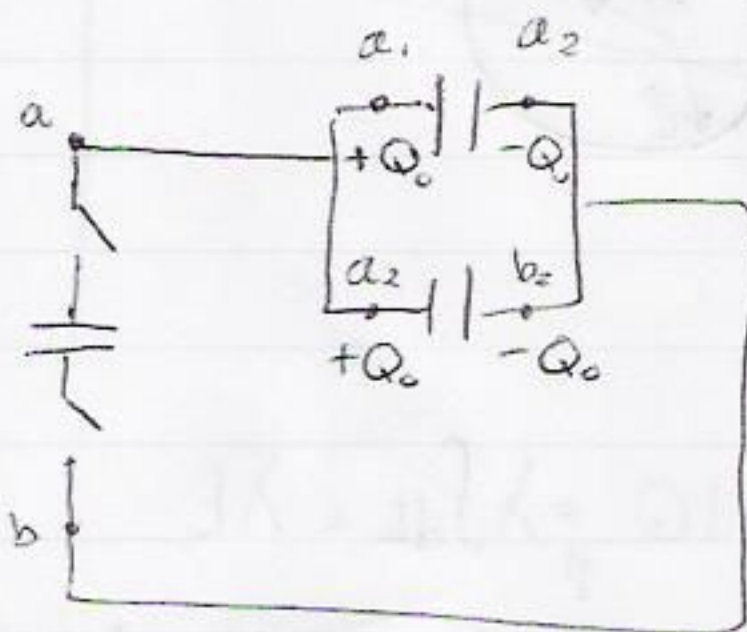 a₁ a₂
a
+Q₀ -Q₀
a₂ b₂
+Q₀ -Q₀
b